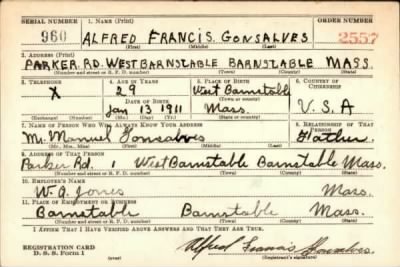 SERIAL NUMBER 1. NAME (Print) ORDER NUMBER
960 ALFRED FRANCIS. GONSALVES 2557
(First) (Middle) (Last)
2. ADDRESS (Print)
PARKER. RD. WEST BARNSTABLE BARNSTABLE MASS.
(Number and street or R. F. D. number) (Town) (County) (State)
3. TELEPHONE 4. AGE IN YEARS 5. PLACE OF BIRTH 6. COUNTRY OF CITIZENSHIP
X 29 West Barnstable
DATE OF BIRTH (Town or county)
Jan 13 1911 Mass. U.S.A
(Exchange) (Number) (Mo.) (Day) (Yr.) (State or country)
7. NAME OF PERSON WHO WILL ALWAYS KNOW YOUR ADDRESS 8. RELATIONSHIP OF THAT PERSON
Mr. Manuel Gonsalves Father
(Mr., Mrs., Miss) (First) (Middle) (Last)
9. ADDRESS OF THAT PERSON
Parker Rd. West Barnstable Barnstable Mass.
(Number and street or R. F. D. number) (Town) (County) (State)
10. EMPLOYER'S NAME
W. A. Jones Mass.
11. PLACE OF EMPLOYMENT OR BUSINESS
Barnstable Barnstable Mass.
(Number and street or R. F. D. number) (Town) (County) (State)
I AFFIRM THAT I HAVE VERIFIED ABOVE ANSWERS AND THAT THEY ARE TRUE.
REGISTRATION CARD Alfred Francis Gonsalves
D. S. S. Form 1 (Registrant's signature)